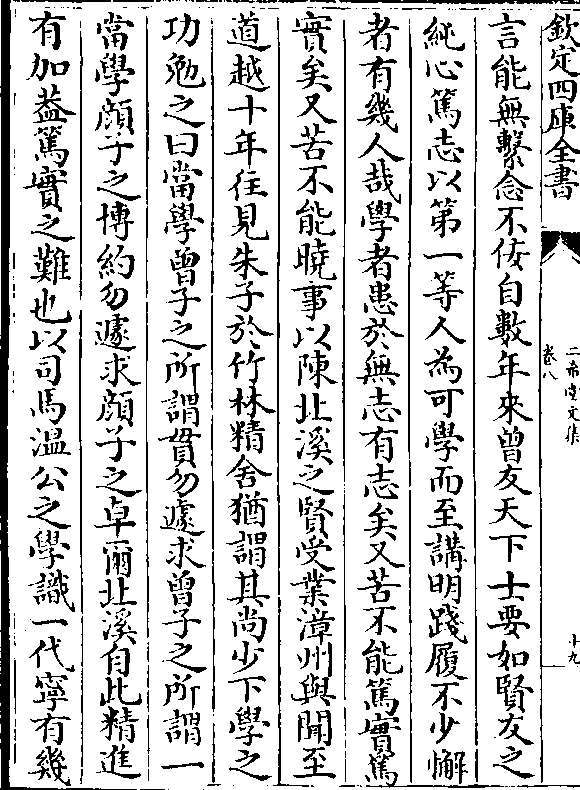 欽定四庫全書
二希堂文集
卷八
十九
言能無繫念不佞自數年來曾友天下士要如賢友之
純心篤志以第一等人為可學而至講明踐履不少懈
者有幾人哉學者患於無志有志矣又苦不能篤實篤
實矣又苦不能曉事以陳北溪之賢受業漳州與聞至
道越十年往見朱子於竹林精舍猶謂其尚少下學之
功勉之曰當學曾子之所謂貫勿遽求曾子之所謂一
當學顔子之博約勿遽求顔子之卓爾北溪自此精進
有加葢篤實之難也以司馬温公之學識一代寧有幾